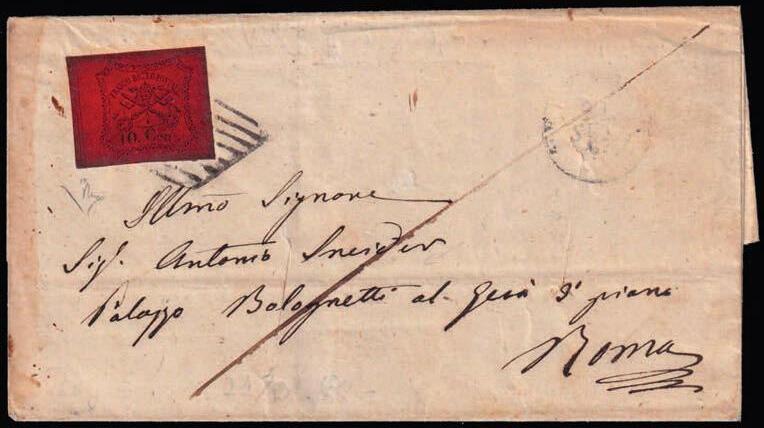 FRANCO BOLLO POSTALE
10 Cent
Illmo Signore
Sig. Antonio Sneider
Palazzo Bolognetti al Gesù 3° piano
Roma